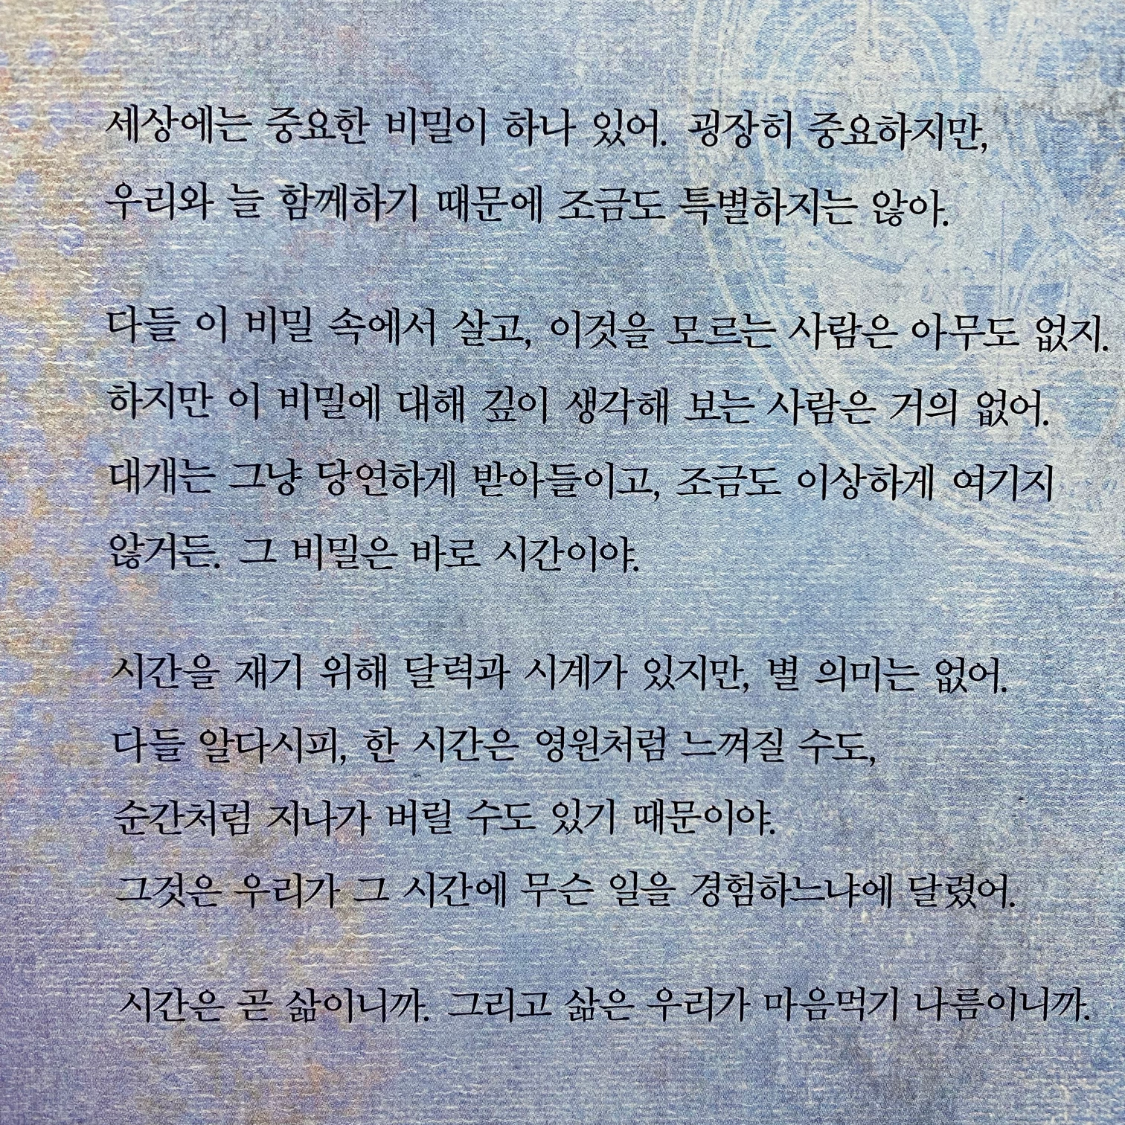 세상에는 중요한 비밀이 하나 있어. 굉장히 중요하지만,
우리와 늘 함께하기 때문에 조금도 특별하지는 않아.
다들 이 비밀 속에서 살고, 이것을 모르는 사람은 아무도 없지.
하지만 이 비밀에 대해 깊이 생각해 보는 사람은 거의 없어.
대개는 그냥 당연하게 받아들이고, 조금도 이상하게 여기지
않거든. 그 비밀은 바로 시간이야.
시간을 재기 위해 달력과 시계가 있지만, 별 의미는 없어.
다들 알다시피, 한 시간은 영원처럼 느껴질 수도,
순간처럼 지나가 버릴 수도 있기 때문이야.
그것은 우리가 그 시간에 무슨 일을 경험하느냐에 달렸어.
시간은 곧 삶이니까. 그리고 삶은 우리가 마음먹기 나름이니까.